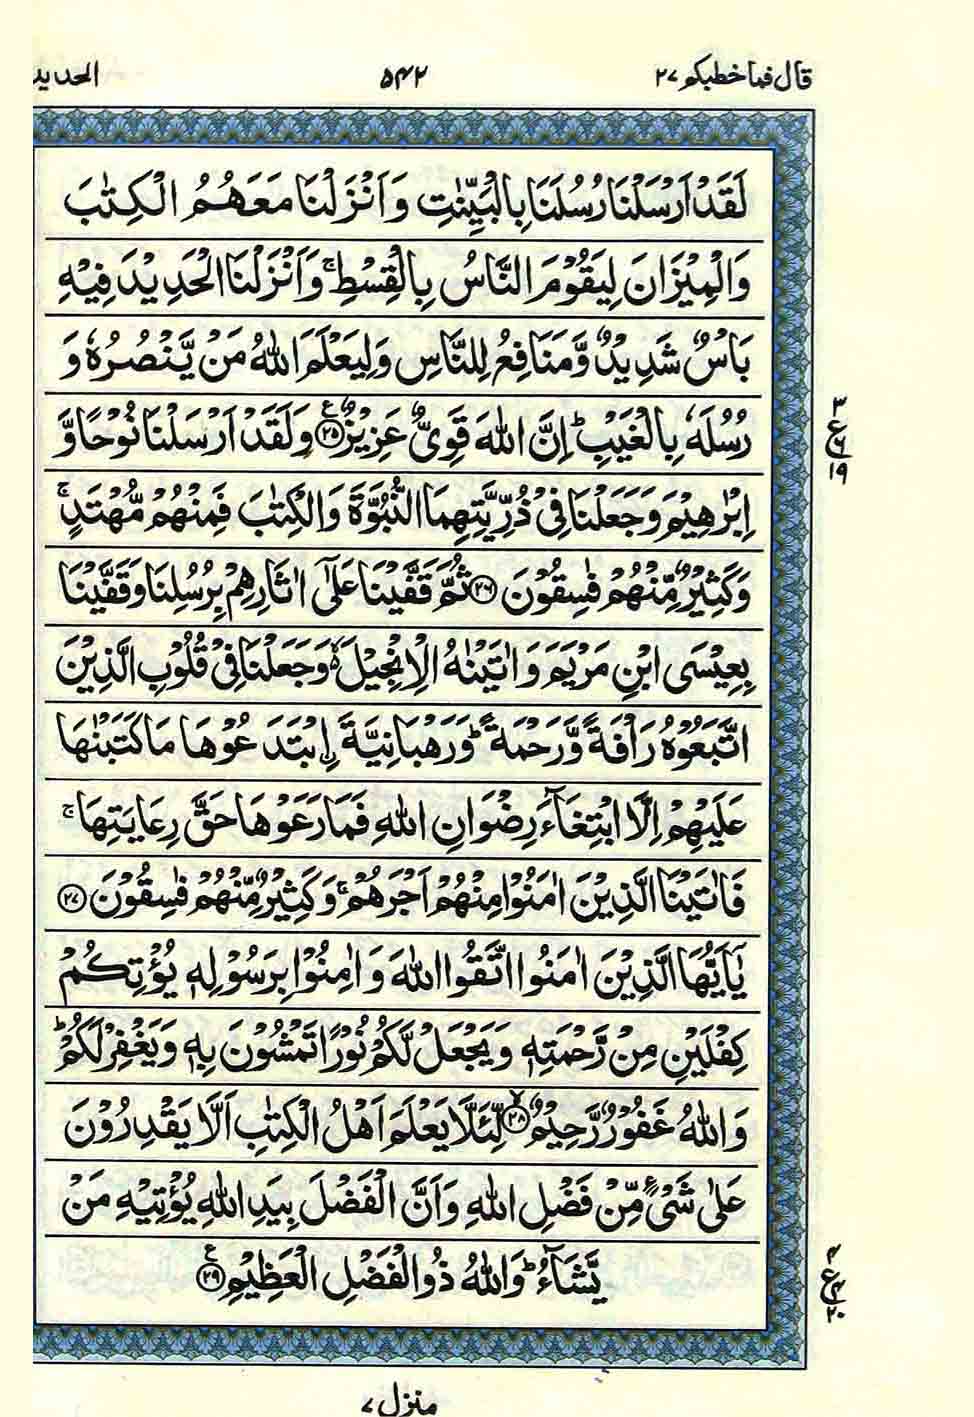 قال فما خطبكم ٢٧ ۵۴۲ الحديد
لَقَدْ اَرْسَلْنَا رُسُلَنَا بِالْبَيِّنٰتِ وَ اَنْزَلْنَا مَعَهُمُ الْكِتٰبَ
وَالْمِيْزَانَ لِيَقُوْمَ النَّاسُ بِالْقِسْطِ ۚ وَاَنْزَلْنَا الْحَدِيْدَ فِيْهِ
بَاْسٌ شَدِيْدٌ وَّمَنَافِعُ لِلنَّاسِ وَلِيَعْلَمَ اللّٰهُ مَنْ يَّنْصُرُهٗ وَ
رُسُلَهٗ بِالْغَيْبِ ؕ اِنَّ اللّٰهَ قَوِىٌّ عَزِيْزٌ ۝٢٥ وَلَقَدْ اَرْسَلْنَا نُوْحًا وَّ
٣
ع
٦
١٩
اِبْرٰهِيْمَ وَجَعَلْنَا فِىْ ذُرِّيَّتِهِمَا النُّبُوَّةَ وَالْكِتٰبَ فَمِنْهُمْ مُّهْتَدٍ ۚ
وَكَثِيْرٌ مِّنْهُمْ فٰسِقُوْنَ ۝٢٦ ثُمَّ قَفَّيْنَا عَلٰٓى اٰثَارِهِمْ بِرُسُلِنَا وَقَفَّيْنَا
بِعِيْسَى ابْنِ مَرْيَمَ وَاٰتَيْنٰهُ الْاِنْجِيْلَ ۙ۬ وَجَعَلْنَا فِىْ قُلُوْبِ الَّذِيْنَ
اتَّبَعُوْهُ رَاْفَةً وَّرَحْمَةً ؕ وَرَهْبَانِيَّةَ ۨ ابْتَدَعُوْهَا مَا كَتَبْنٰهَا
عَلَيْهِمْ اِلَّا ابْتِغَآءَ رِضْوَانِ اللّٰهِ فَمَا رَعَوْهَا حَقَّ رِعَايَتِهَا ۚ
فَاٰتَيْنَا الَّذِيْنَ اٰمَنُوْا مِنْهُمْ اَجْرَهُمْ ۚ وَكَثِيْرٌ مِّنْهُمْ فٰسِقُوْنَ ۝٢٧
يٰۤاَيُّهَا الَّذِيْنَ اٰمَنُوا اتَّقُوا اللّٰهَ وَاٰمِنُوْا بِرَسُوْلِهٖ يُؤْتِكُمْ
كِفْلَيْنِ مِنْ رَّحْمَتِهٖ وَيَجْعَلْ لَّكُمْ نُوْرًا تَمْشُوْنَ بِهٖ وَيَغْفِرْ لَكُمْ ؕ
وَاللّٰهُ غَفُوْرٌ رَّحِيْمٌ ۝٢٨ لِّئَلَّا يَعْلَمَ اَهْلُ الْكِتٰبِ اَلَّا يَقْدِرُوْنَ
عَلٰى شَىْءٍ مِّنْ فَضْلِ اللّٰهِ وَاَنَّ الْفَضْلَ بِيَدِ اللّٰهِ يُؤْتِيْهِ مَنْ
يَّشَآءُ ؕ وَاللّٰهُ ذُو الْفَضْلِ الْعَظِيْمِ ۝٢٩
۴
ع
۴
٢٠
منزل ٧